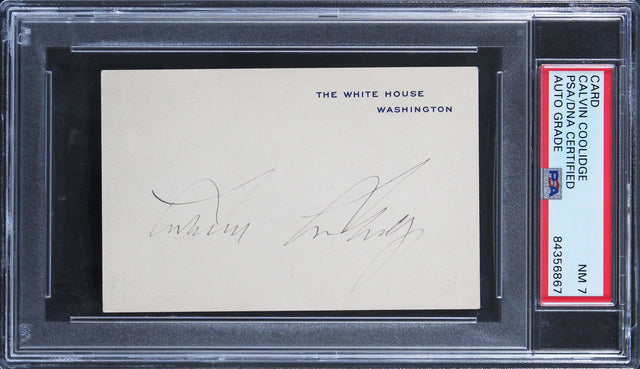 THE WHITE HOUSE
WASHINGTON
Calvin Coolidge
CARD
CALVIN COOLIDGE
PSA/DNA CERTIFIED
AUTO GRADE
PSA
NM 7
84356867